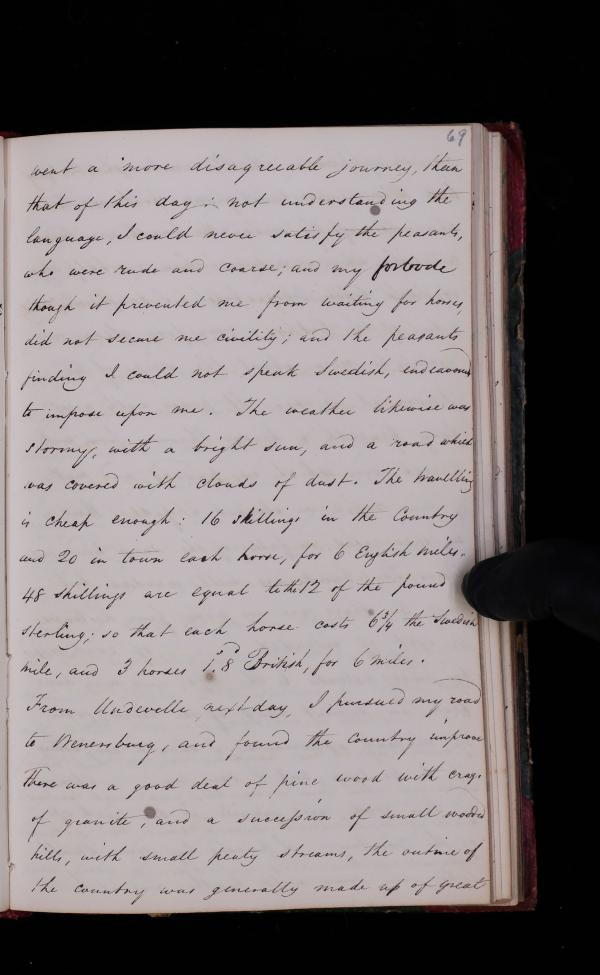 69
went a more disagreeable journey, than
that of this day: not understanding the
language, I could never satisfy the peasants,
who were rude and coarse; and my forbode
though it prevented me from waiting for horses,
did not secure me civility; and the peasants
finding I could not speak Swedish, endeavoured
to impose upon me. The weather likewise was
stormy, with a bright sun, and a road which
was covered with clouds of dust. The travelling
is cheap enough: 16 skillings in the Country
and 20 in town each horse, for 6 English miles.
48 skillings are equal to the 12 of the pound
sterling; so that each horse costs 6¾ the Swedish
mile, and 3 horses 1.8 British, for 6 miles.
From Undevelle next day, I pursued my road
to Wenersburg, and found the country improve
There was a good deal of pine wood with crags
of granite, and a succession of small wooded
hills, with small peaty streams, the outline of
the country was generally made up of great